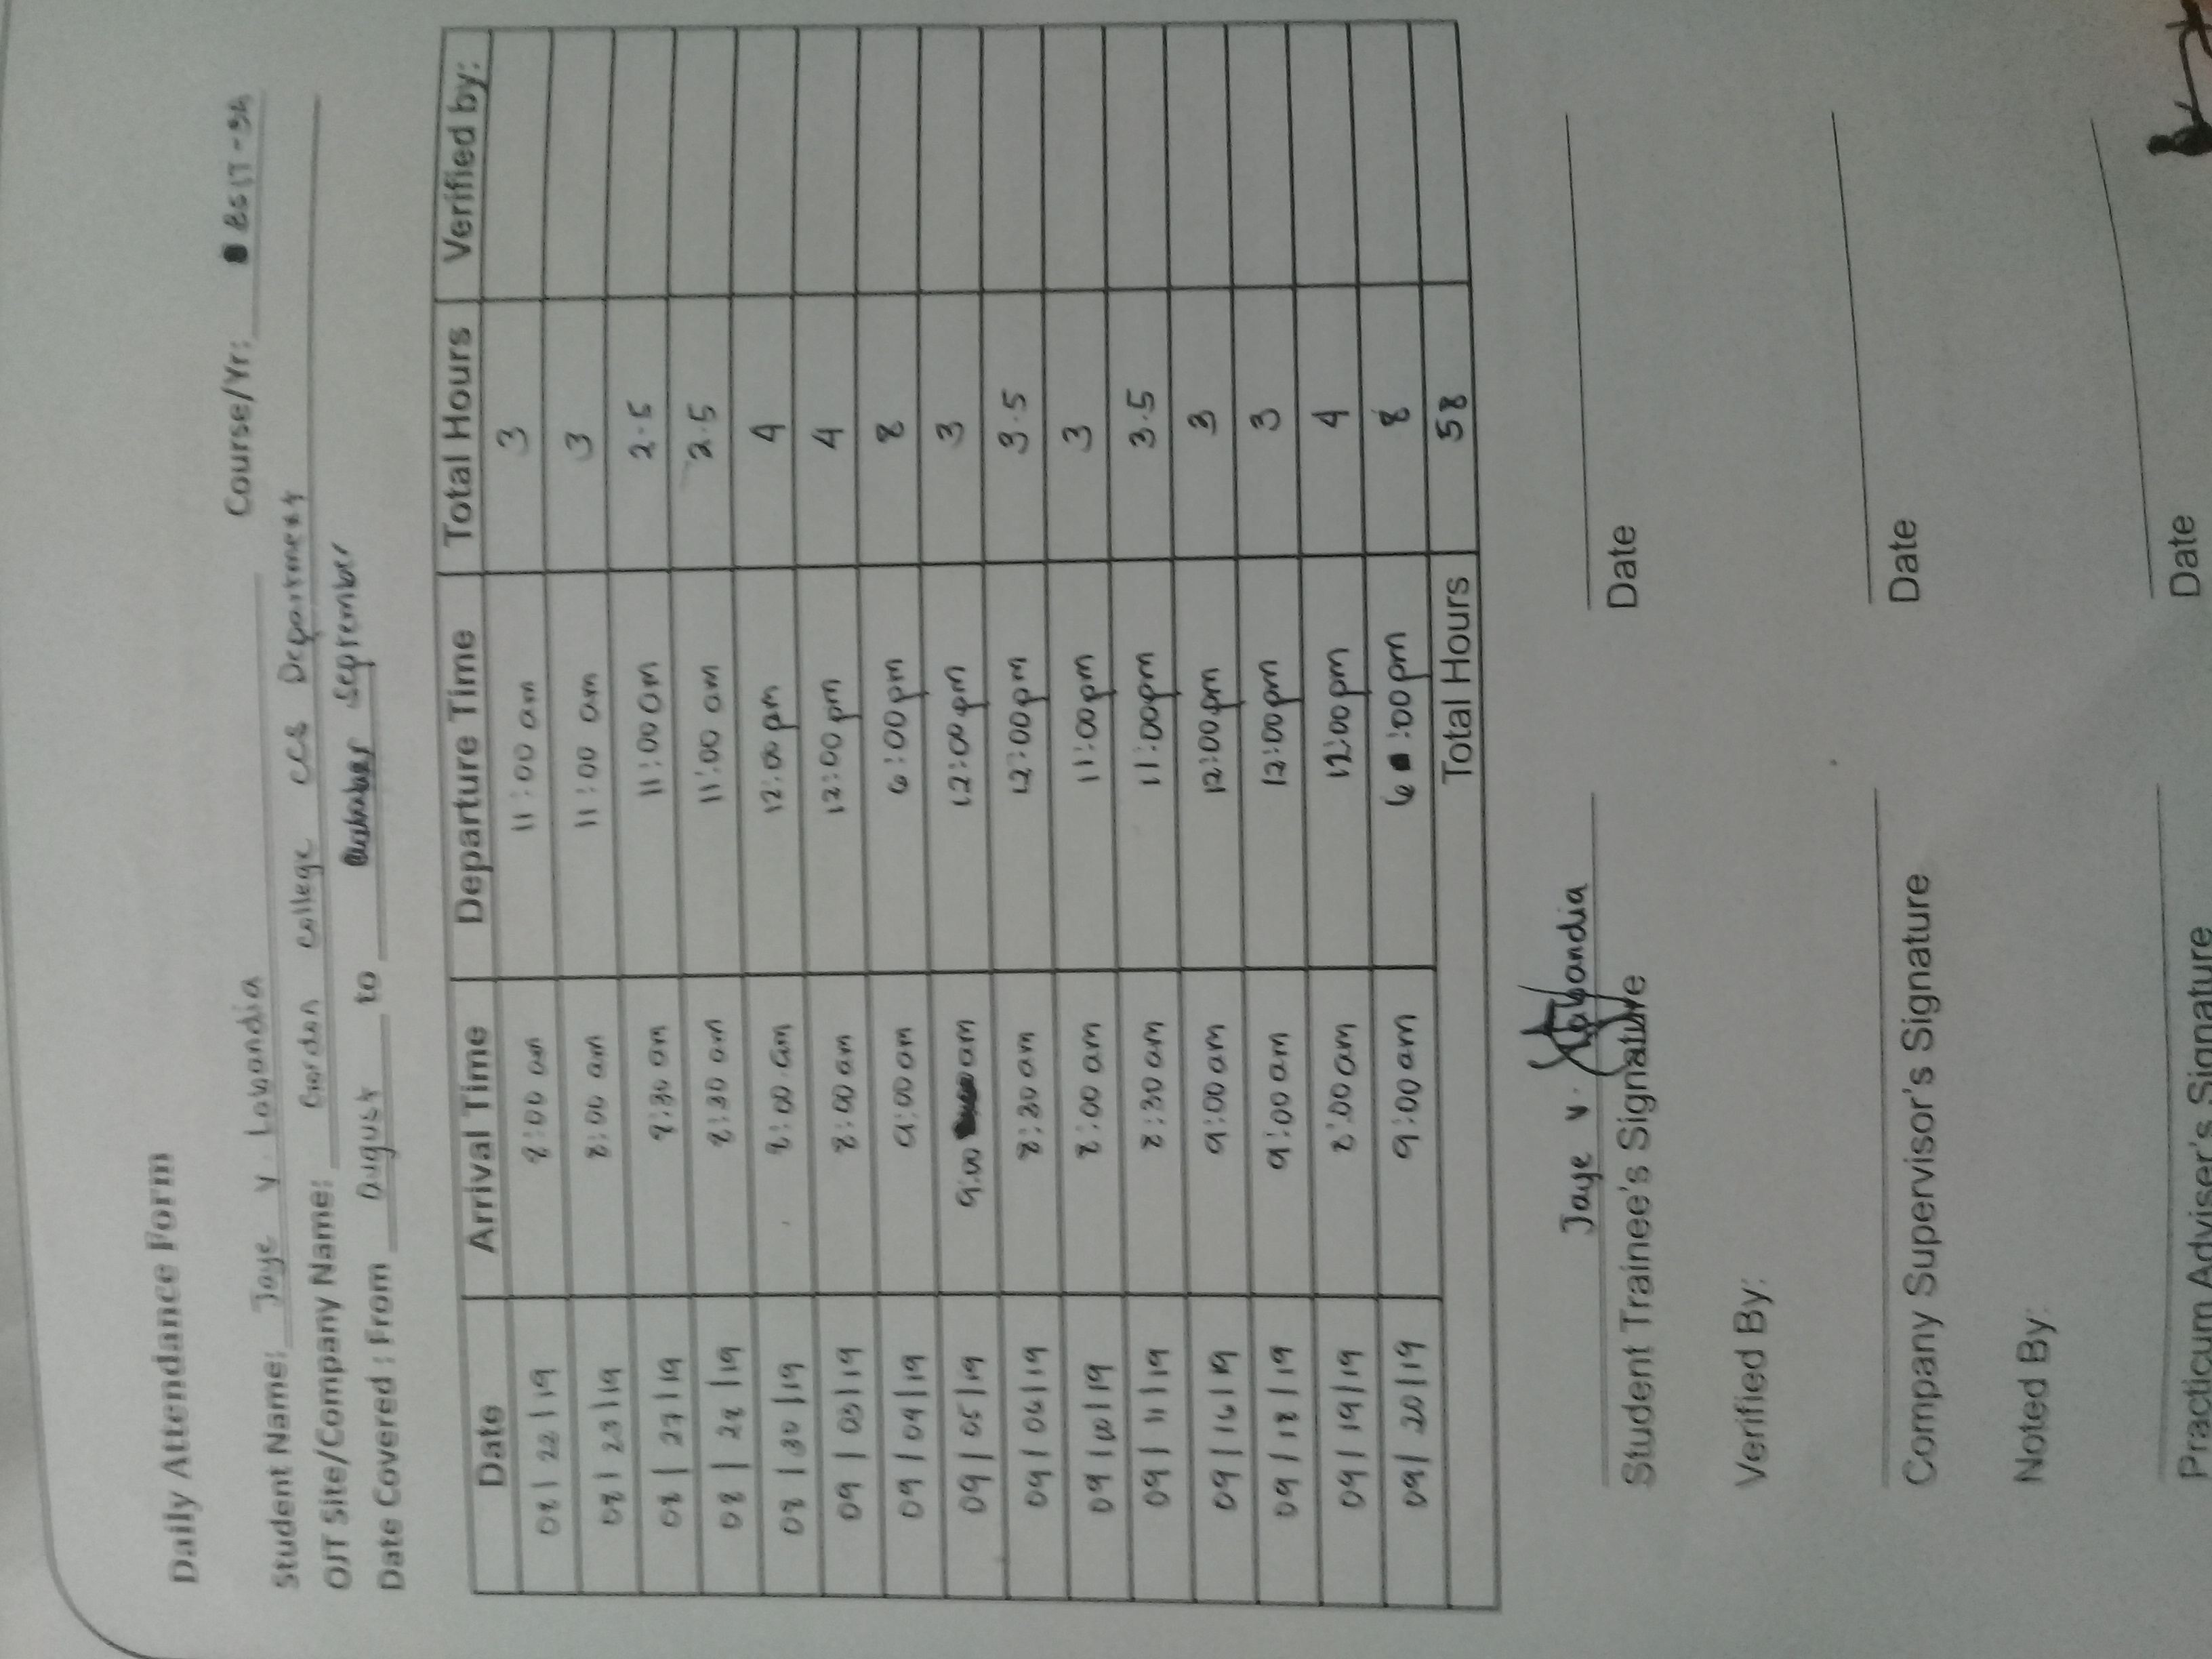 Daily Attendance Form
Student Name: Jaye V. Labandia Course/Yr: BSIT-3A
OJT Site/Company Name: Gordon College CCS Department
Date Covered : From August to September
Date Arrival Time Departure Time Total Hours Verified by:
08/22/19 8:00 am 11:00 am 3
08/23/19 8:00 am 11:00 am 3
08/27/19 8:30 am 11:00 am 2.5
08/28/19 8:30 am 11:00 am 2.5
08/30/19 8:00 am 12:00 pm 4
09/03/19 8:00 am 12:00 pm 4
09/04/19 9:00 am 6:00 pm 8
09/05/19 9:00 am 12:00 pm 3
09/06/19 8:30 am 12:00 pm 3.5
09/10/19 8:00 am 11:00 pm 3
09/11/19 8:30 am 11:00 pm 3.5
09/16/19 9:00 am 12:00 pm 3
09/18/19 9:00 am 12:00 pm 3
09/19/19 8:00 am 12:00 pm 4
09/20/19 9:00 am 6:00 pm 8
Total Hours 58
Jaye V. Labandia
Student Trainee's Signature Date
Verified By:
Company Supervisor's Signature Date
Noted By:
Practicum Adviser's Signature Date